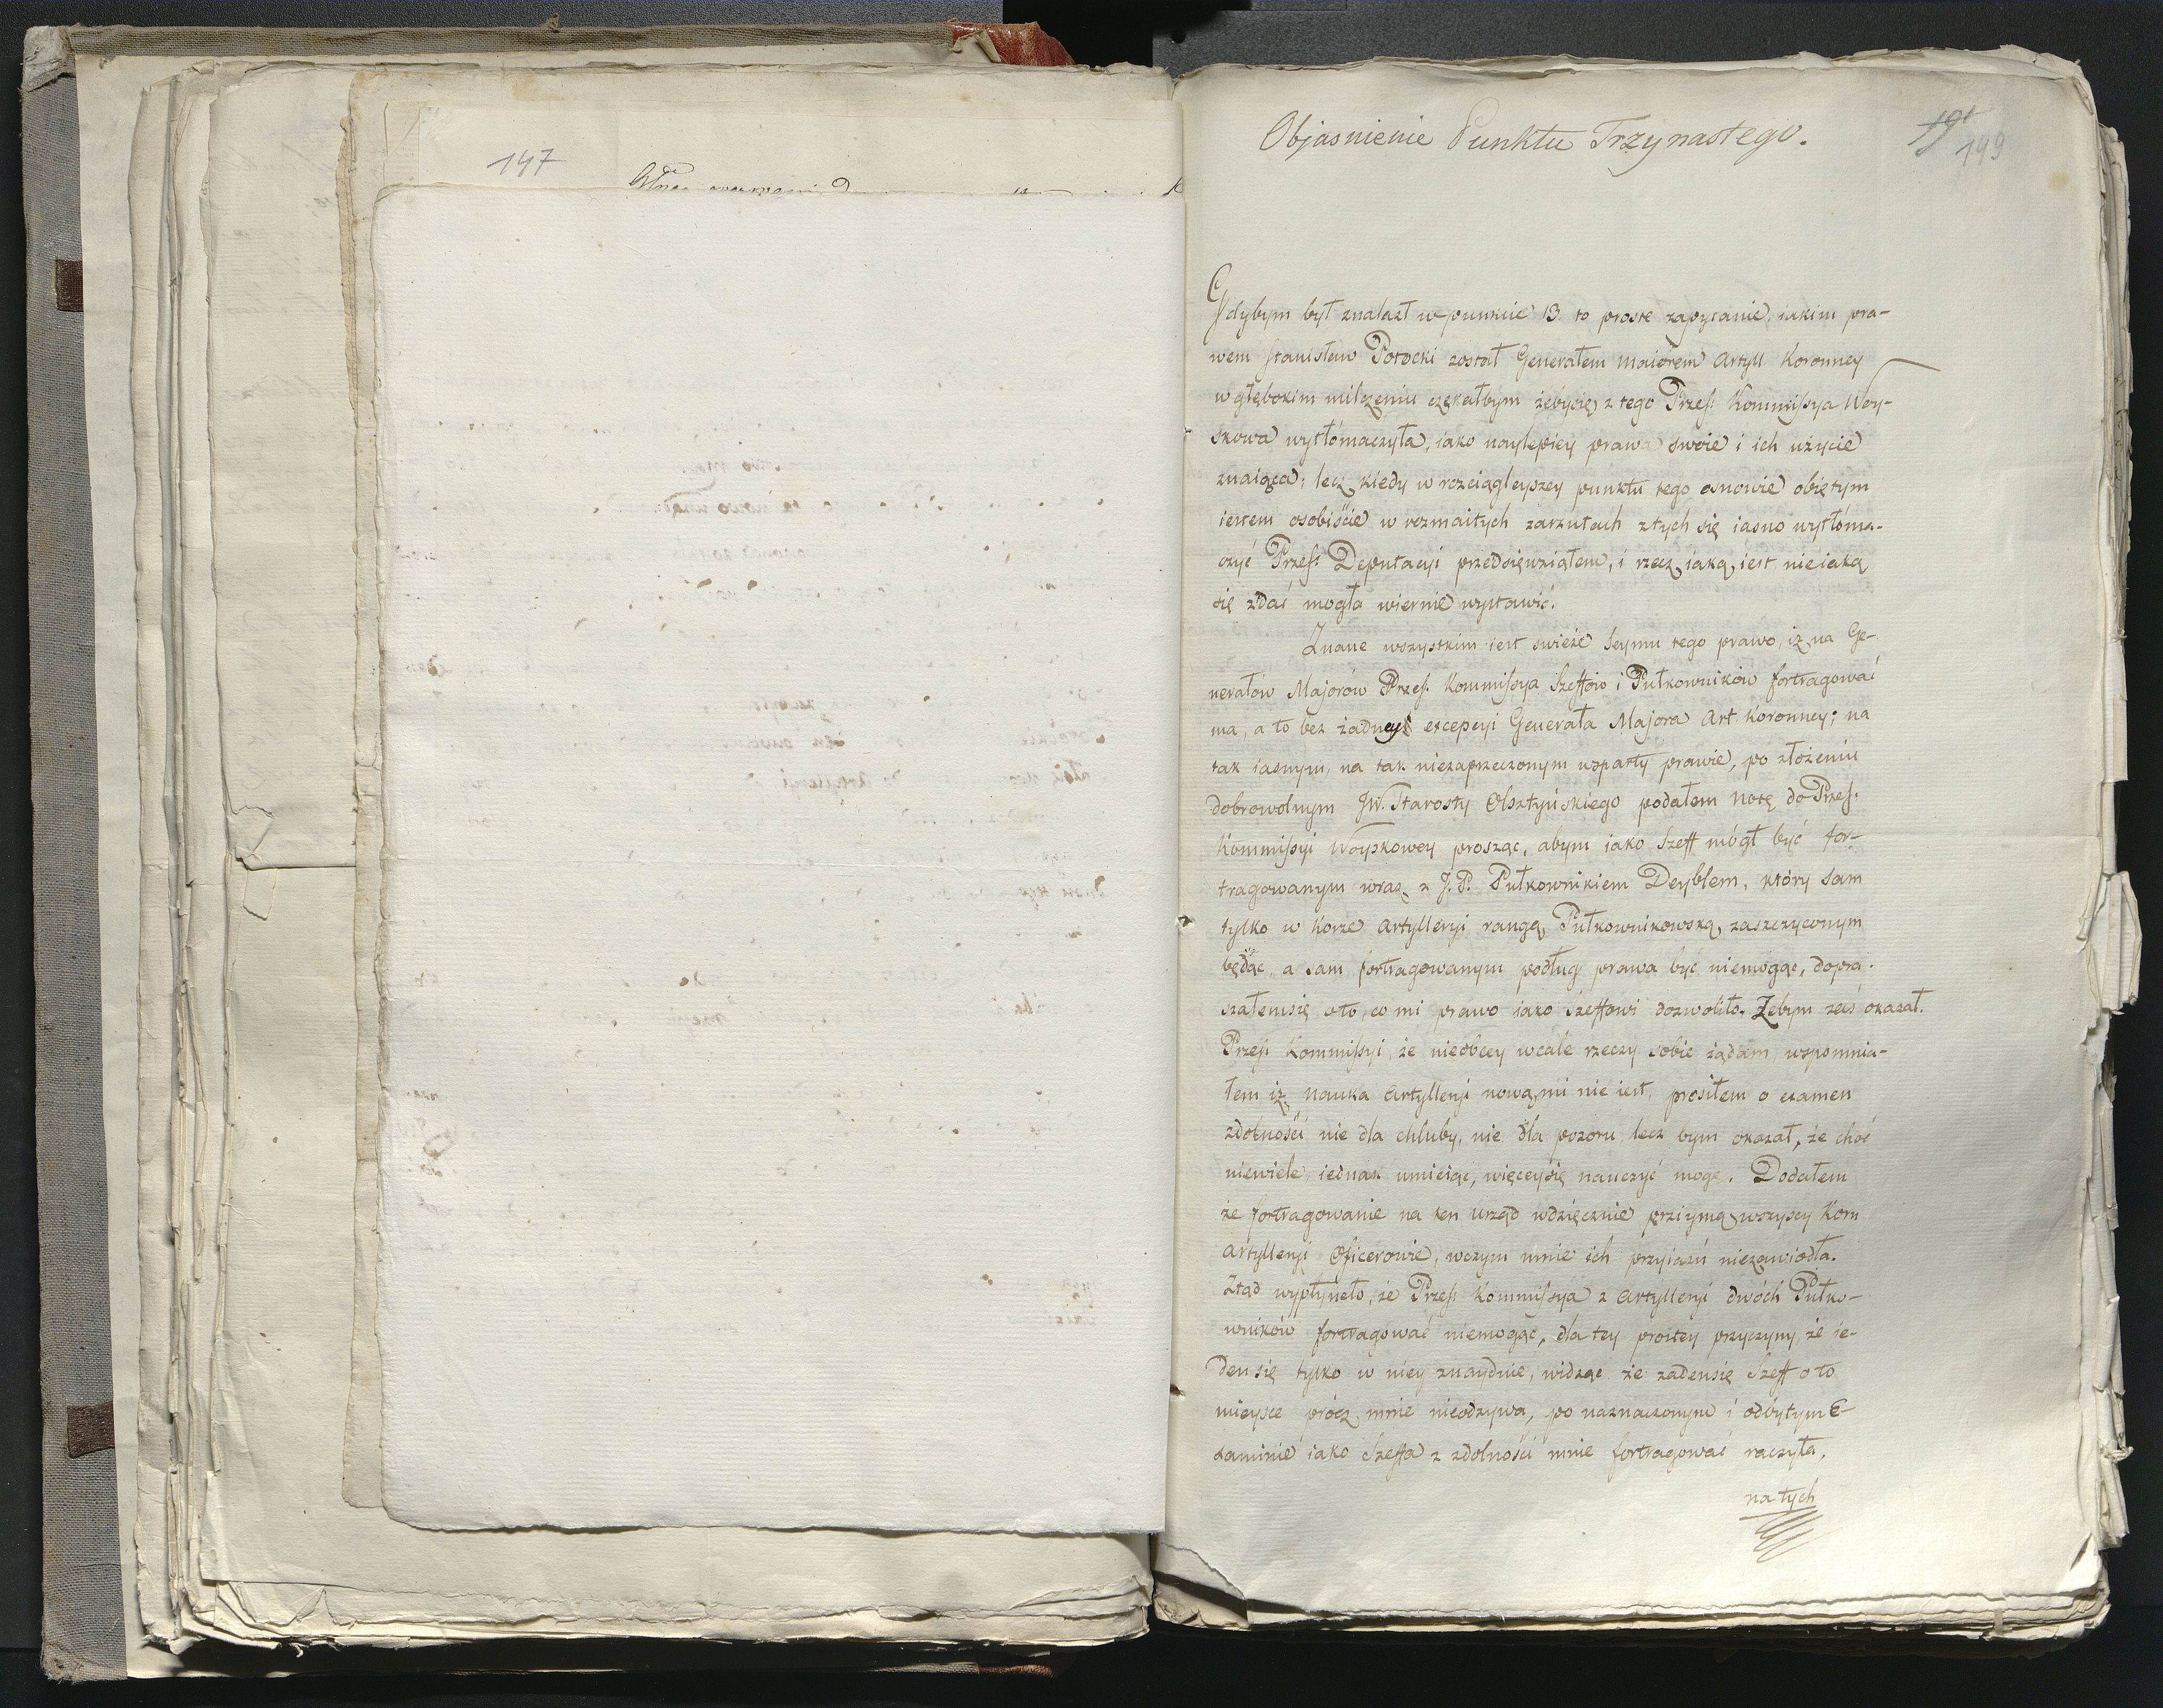 147
Objasnienie Punktu Trzynastego.
191
149
Gdybym był znalazł w punkcie 13. to proste zapytanie, iakim pra-
wem Stanisław Potocki został Generałem Maiorem Artyll Koronney
w głębokim milczeniu czekałbym żebysię z tego Przes: Kommissya Woy-
skowa wytłómaczyła, iako naylepiey prawa swoie i ich użycie
znaiąca; lecz kiedy w rozciągleyszey punktu tego osnowie obiętym
iestem osobiście w rozmaitych zarzutach z tych się iasno wytłóma-
czyć Przes: Deputacyi przedsięwziąłem, i rzecz iaką iest nie iaką
się zdać mogła wiernie wystawić.
Znane wszystkim iest swieże Seymu tego prawo, iż na Ge-
nerałów Majorów Przes. Kommissya Szeffów i Pułkowników fortragować
ma, a to bez żadney excepcyi Generała Majora Art. Koronney; na
tak iasnym, na tak niezaprzeczonym wsparty prawie, po złożeniu
dobrowolnym JW. Starosty Olsztyńskiego podałem Notę do Przes.
Kommissyi Woyskowey prosząc, abym iako Szeff mógł być for-
tragowanym wraz z J. P. Pułkownikiem Deyblem, który sam
tylko w Korze Artylleryi rangą Pułkownikowską zaszczyconym
będąc a sam fortragowanym podług prawa być niemogąc, dopra-
szałemsię o to, co mi prawo iako Szeffowi dozwoliło. Żebym zaś okazał
Przes: Kommissyi, że nieobcey wcale rzeczy sobie żądam, wspomnia-
łem iż nauka Artylleryi nową mi nie iest, prosiłem o examen
zdolności nie dla chluby, nie dla pozoru lecz bym okazał, że choć
niewiele iednak umieiąc, więceysię nauczyć mogę. Dodałem
że fortragowanie na ten urząd wdzięcznie przyimą wszyscy Korp
Artylleryi Oficerowie, w czym mnie ich przyiaźń niezawiodła.
Ztąd wypłyneło, że Przes: Kommissya z Artylleryi dwóch Pułko-
wników fortragować niemogąc, dla tey prostey przyczyny, że ie-
den się tylko w niey znayduie, widząc że żadensię Szeff o to
mieysce prócz mnie nieodzywa, po naznaczonym i odbytym E-
xaminie iako Szeffa z zdolności mnie fortragować raczyła,
na tych